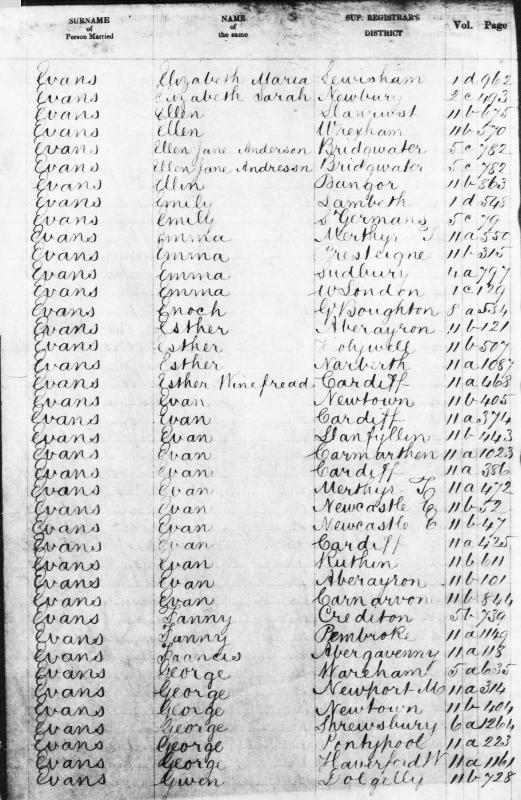 SURNAME of Person Married NAME of the same SUP. REGISTRAR'S DISTRICT Vol. Page
Evans Elizabeth Maria Lewisham 1 d 962
Evans Elizabeth Sarah Newbury 2 c 493
Evans Ellen Llanrwst 11 b 675
Evans Ellen Wrexham 11 b 570
Evans Ellen Jane Anderson Bridgwater 5 c 782
Evans Ellen Jane Andresson Bridgwater 5 c 782
Evans Ellin Bangor 11 b 863
Evans Emily Lambeth 1 d 548
Evans Emily St Germans 5 c 79
Evans Emma Merthyr T. 11 a 550
Evans Emma Presteigne 11 b 315
Evans Emma Sudbury 4 a 797
Evans Emma W London 1 c 129
Evans Enoch Gt Boughton 8 a 534
Evans Esther Aberayron 11 b 121
Evans Esther Holywell 11 b 507
Evans Esther Narberth 11 a 1087
Evans Esther Winefread Cardiff 11 a 468
Evans Evan Newtown 11 b 405
Evans Evan Cardiff 11 a 374
Evans Evan Llanfyllin 11 b 443
Evans Evan Carmarthen 11 a 1023
Evans Evan Cardiff 11 a 386
Evans Evan Merthyr 11 a 472
Evans Evan Newcastle E 11 b 52
Evans Evan Newcastle E 11 b 47
Evans Evan Cardiff 11 a 425
Evans Evan Ruthin 11 b 611
Evans Evan Aberayron 11 b 101
Evans Evan Carnarvon 11 b 844
Evans Fanny Crediton 5 b 739
Evans Fanny Pembroke 11 a 1149
Evans Francis Abergavenny 11 a 113
Evans George Wareham 5 a 635
Evans George Newport M 11 a 314
Evans George Newtown 11 b 404
Evans George Shrewsbury 6 a 1264
Evans George Pontypool 11 a 223
Evans George Haverford W 11 a 1161
Evans Gwen Dolgelly 11 b 728